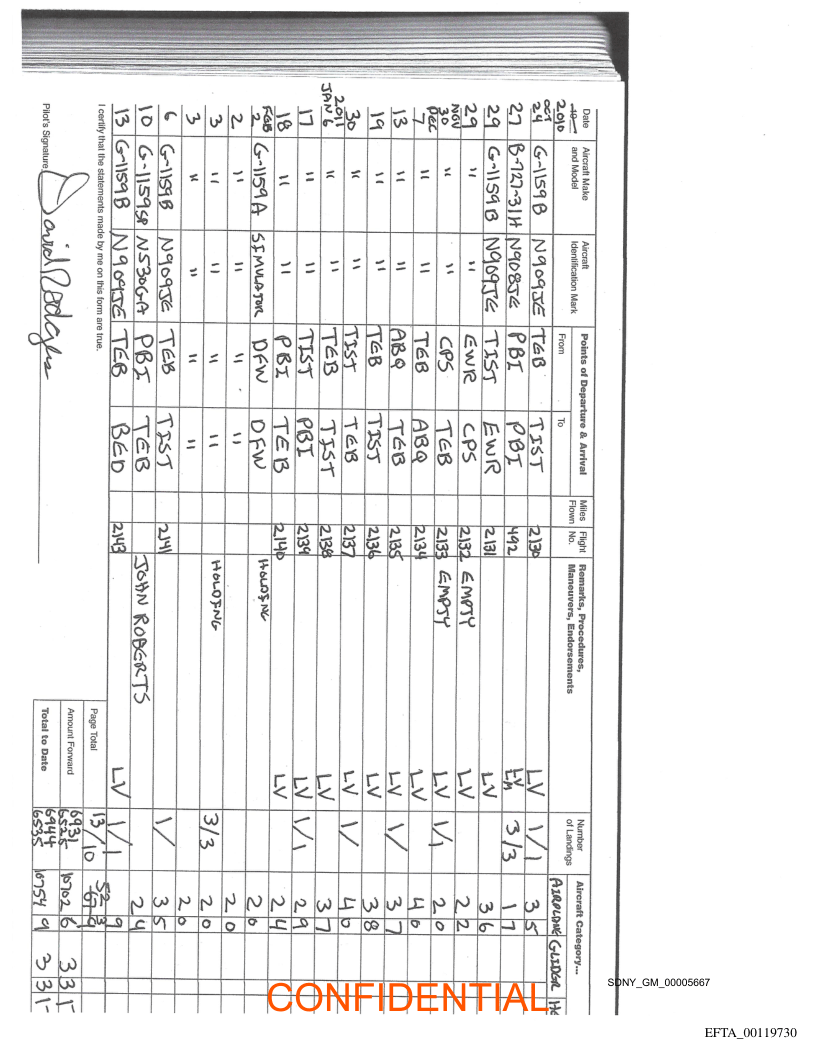 Date
Aircraft Make and Model
Aircraft Identification Mark
Points of Departure & Arrival
From
To
Miles Flown
Flight No.
Remarks, Procedures, Maneuvers, Endorsements
Number of Landings
Aircraft Category...
2010
AIRPLANE GLIDER
OCT 24 G-1159B N909JE TEB TIST 2130 LV 1/1 3 5
27 B-727-31H N908JE PBI PBI 492 LV LM 3/3 1 7
29 G-1159B N909JE TIST EWR 2131 LV 3 6
29 " " EWR CPS 2132 EMPTY LV 2 2
NOV 30 " " CPS TEB 2133 EMPTY LV 1/1 2 0
DEC 7 " " TEB ABQ 2134 LV 4 0
13 " " ABQ TEB 2135 LV 1/ 3 7
19 " " TEB TIST 2136 LV 3 8
30 " " TIST TEB 2137 LV 1/ 4 0
2011 JAN 6 " " TEB TIST 2138 LV 3 7
17 " " TIST PBI 2139 LV 1/1 2 9
18 " " PBI TEB 2140 LV 2 4
FEB 2 G-1159A SIMULATOR DFW DFW HOLDING 2 0
2 " " " " 2 0
3 " " " " HOLDING 3/3 2 0
3 " " " " 2 0
6 G-1159B N909JE TEB TIST 2141 1/ 3 5
10 G-1159SP N530GA PBI TEB JOHN ROBERTS 2 4
13 G-1159B N909JE TEB BED 2143 LV 1/1 9
I certify that the statements made by me on this form are true.
Page Total 13/10 52 3
Amount Forward 6931 6525 10702 6 3 3 1
Pilot's Signature David Rodgers
Total to Date 6944 6535 10754 9 3 3 1
SDNY_GM_00005667
CONFIDENTIAL
EFTA_00119730